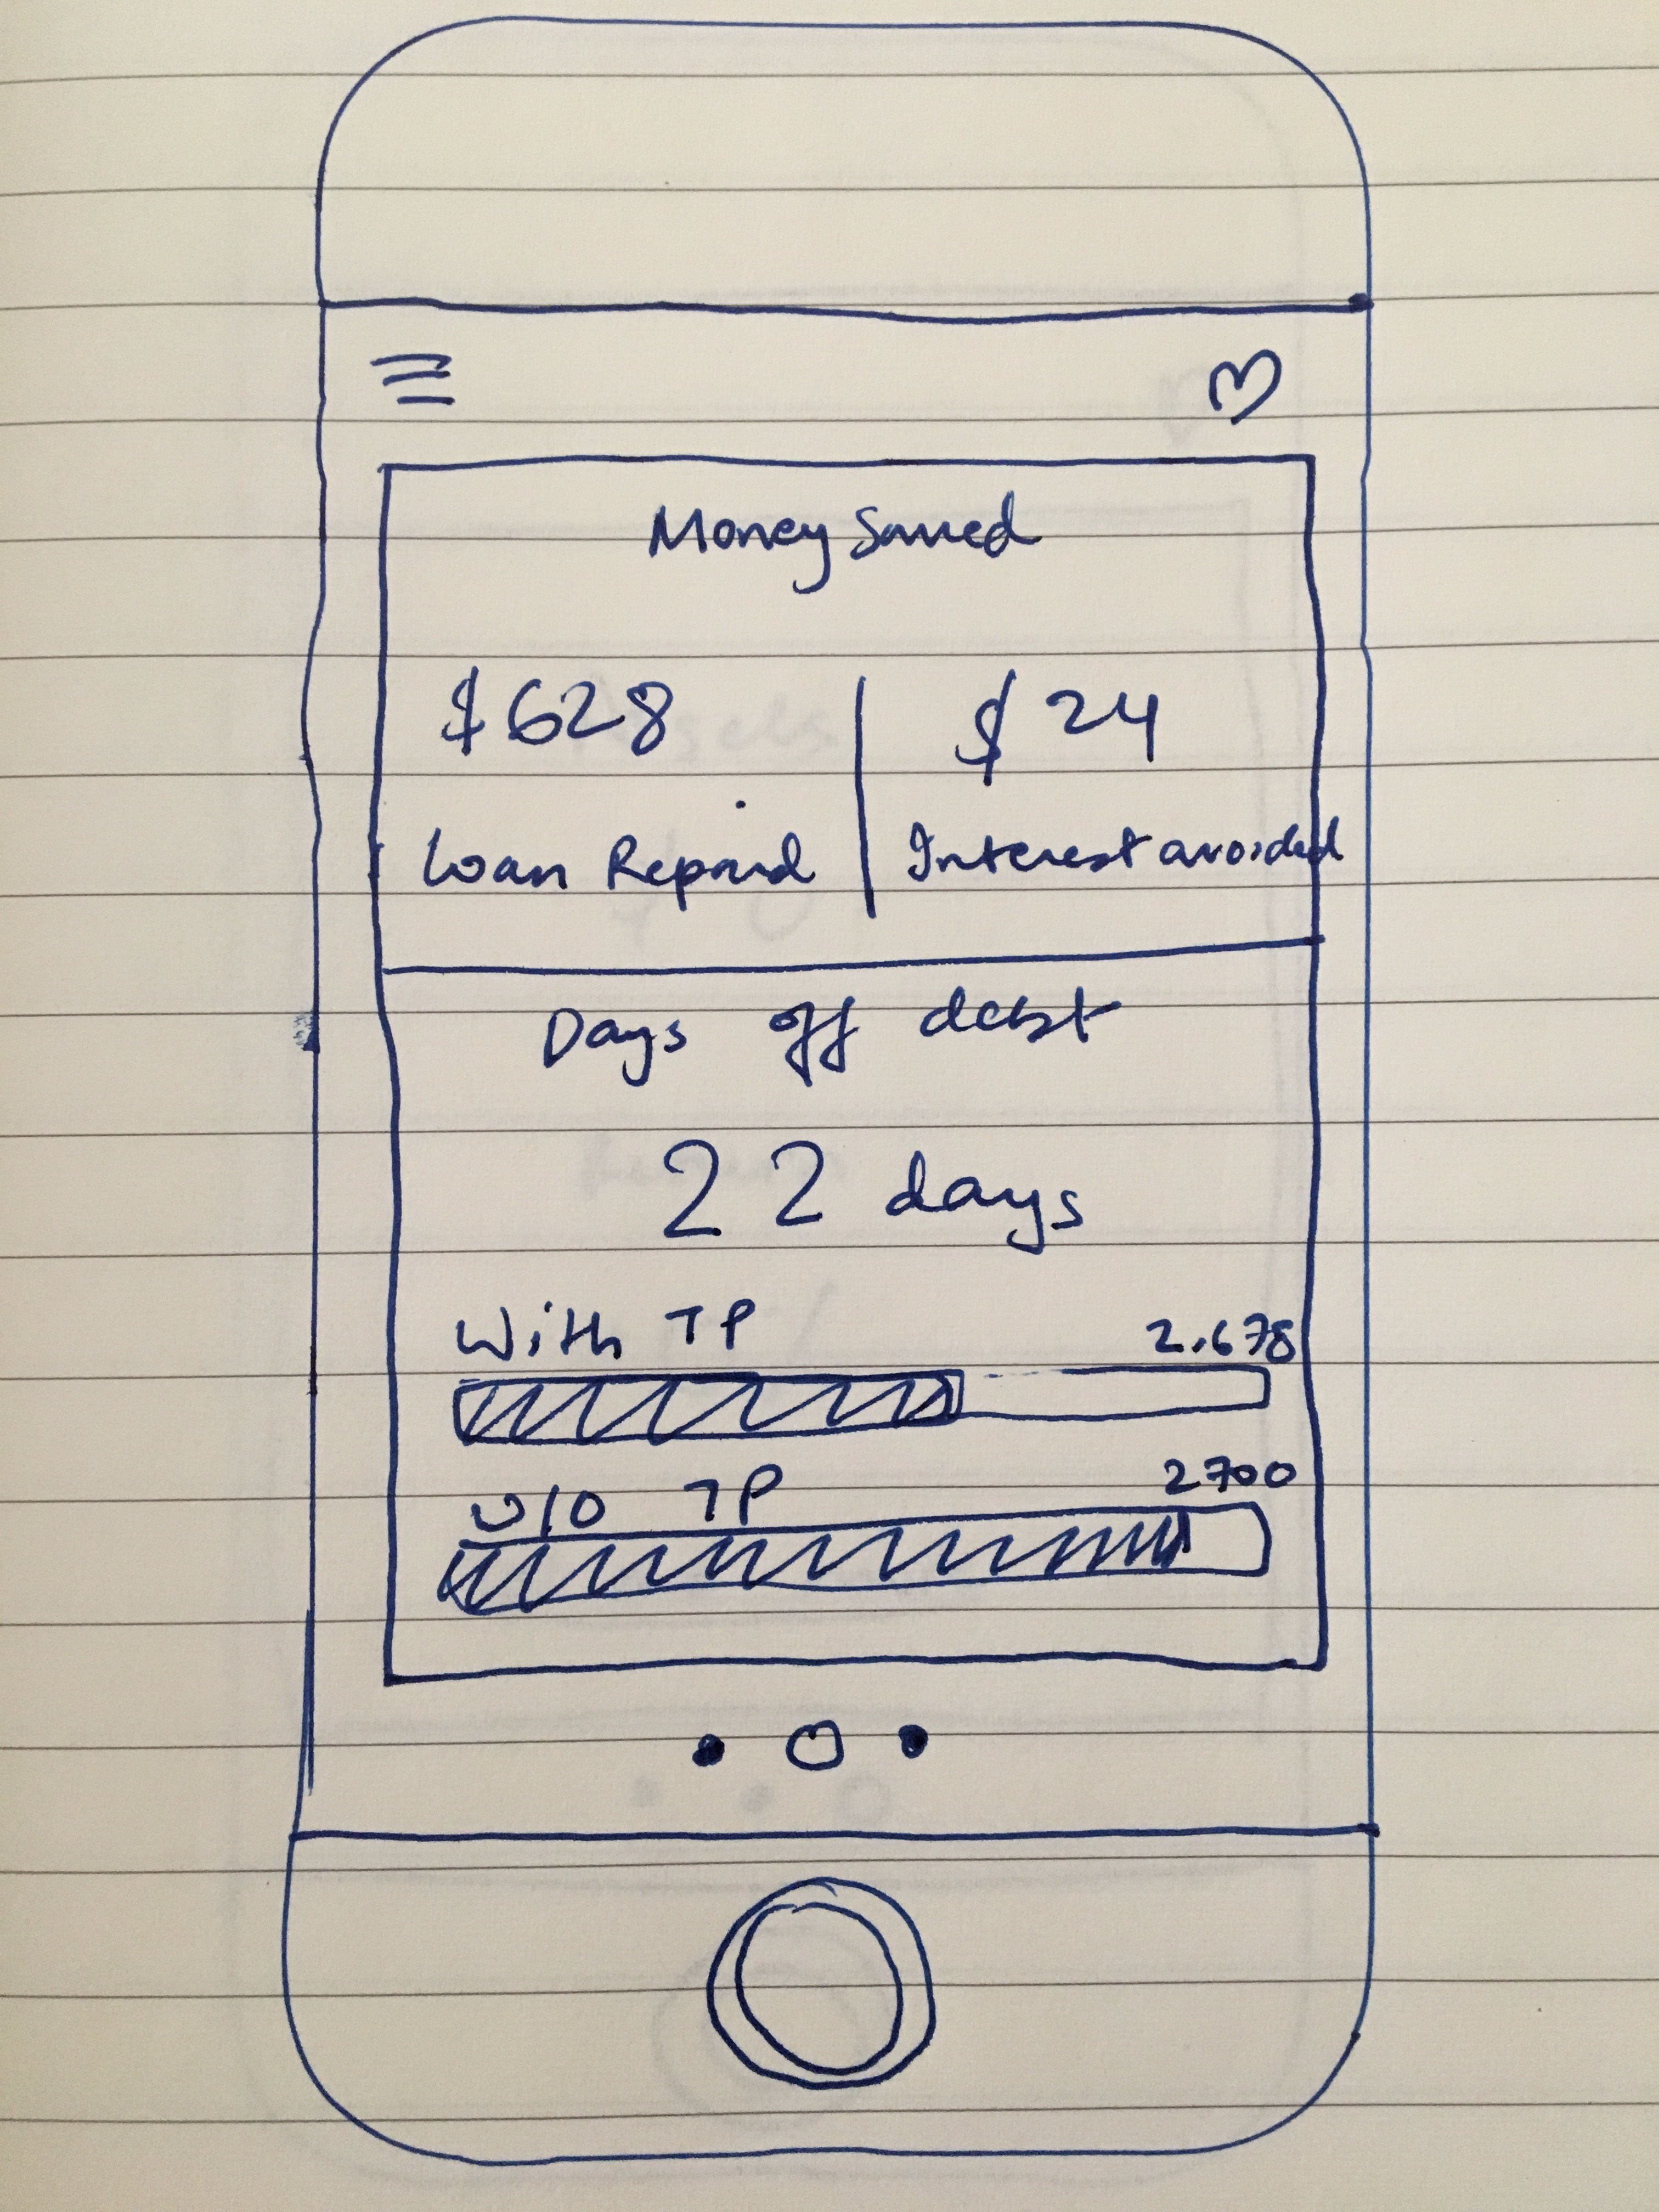 Money Saved
$628 $24
Loan Repaid Interest avoided
Days off debt
22 days
With TP 2.678
W/O TP 2700